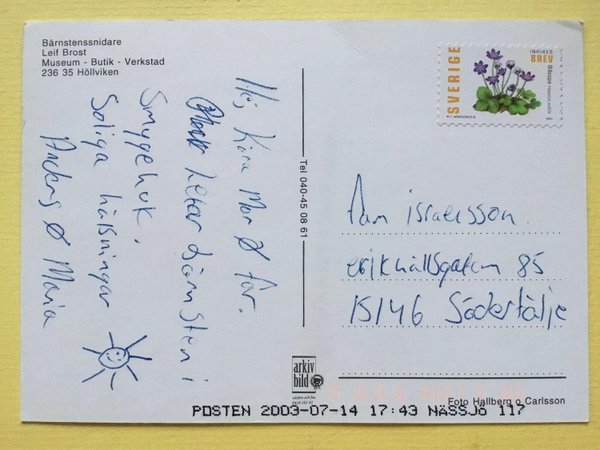 Bärnstenssnidare
Leif Brost
Museum - Butik - Verkstad
236 35 Höllviken
Hej Kära Mor & far.
letar bärnsten i
Smygehuk.
Soliga hälsningar
Anders & Maria
Tel 040-45 08 61
SVERIGE
INRIKES
BREV
Blåsippa Hepatica nobilis
Fam israelsson.
erikhällsgatan 85
15146 Södertälje
arkiv
bild
Foto Hallberg o Carlsson
POSTEN 2003-07-14 17:43 NÄSSJÖ 117